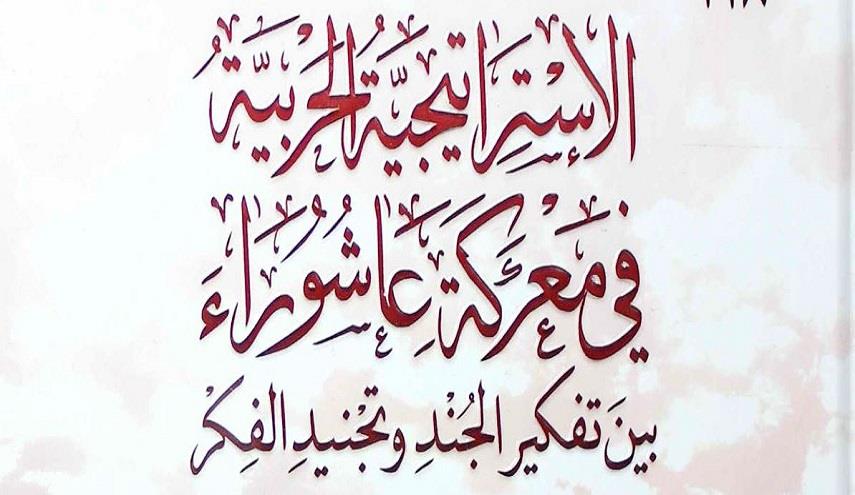 الإِسْتِرَاتِيجِيَّةُ الحَرْبِيَّةُ
فِي مَعْرَكَةِ عَاشُورَاءَ
بَينَ تَفْكِيرِ الجُنْدِ وَتَجْنِيدِ الفِكْرِ